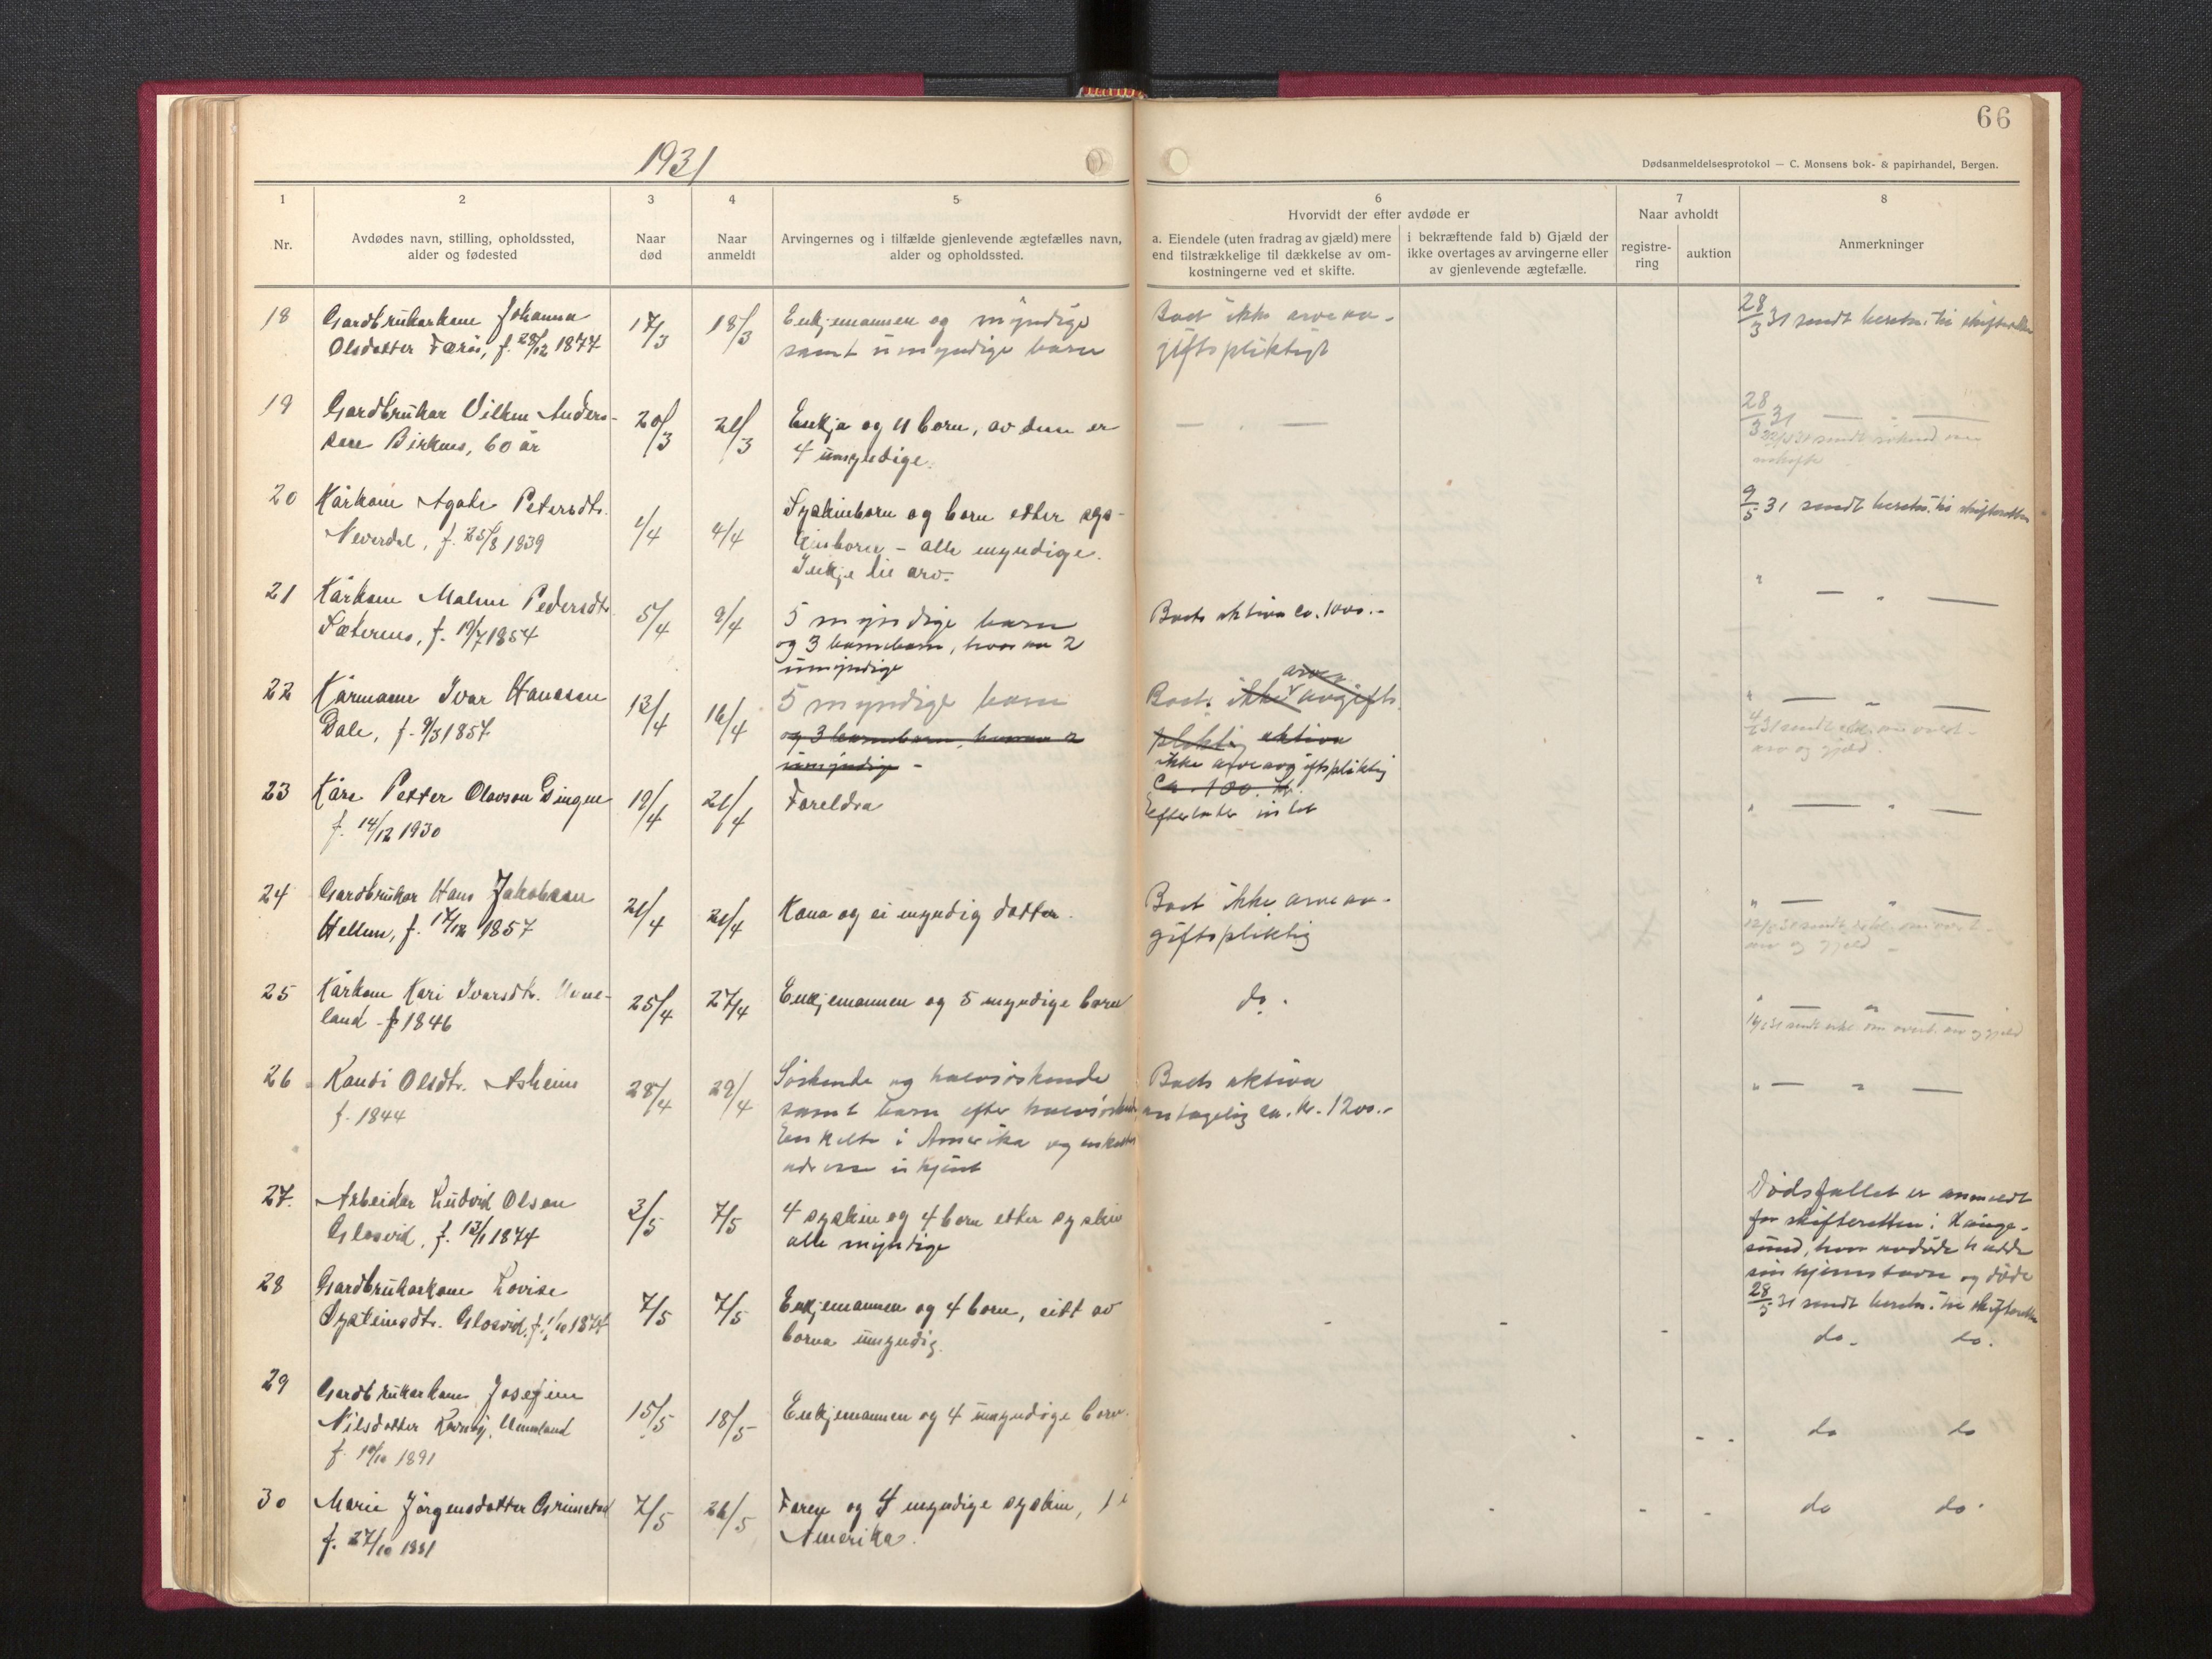 66
1931
Dødsanmeldelsesprotokol — C. Monsens bok- & papirhandel, Bergen.
1
2
3
4
5
6
7
8
Nr.
Avdødes navn, stilling, opholdssted,
alder og fødested
Naar
død
Naar
anmeldt
Arvingernes og i tilfælde gjenlevende ægtefælles navn,
alder og opholdssted.
Hvorvidt der efter avdøde er
a. Eiendele (uten fradrag av gjæld) mere
end tilstrækkelige til dækkelse av om-
kostningerne ved et skifte.
i bekræftende fald b) Gjæld der
ikke overtages av arvingerne eller
av gjenlevende ægtefælle.
Naar avholdt
registre-
ring
auktion
Anmerkninger
18
Gardbrukarkone Johanna
Olsdatter Færøi, f. 28/12 1874
17/3
18/3
Enkjemannen og myndige
samt umyndige barn
Boet ikke arveav-
giftspliktigt
28/3 31 sendt beretn. til skifteretten
19
Gardbrukar Villum Anders-
sen Birknes, 60 år
20/3
21/3
Enkja og 11 born, av dem er
4 umyndige.
— " —
28/3 31 — " —
20
Kårkone Agate Petersdtr.
Neverdal, f. 25/8 1839
1/4
4/4
Syskinborn og born etter sys-
kinborn - alle myndige.
Inkje til arv.
9/5 31 sendt beretn. til skifteretten
21
Kårkone Malene Pedersdtr.
Sæternes, f. 19/7 1854
5/4
9/4
5 myndige barn
og 3 barnebarn, hvorav 2
umyndige
Boets aktiva ca. 1000.-
" — " —
22
Kårmann Ivar Hansson
Dale, f. 9/3 1857
13/4
16/4
5 myndige barn
og 3 barnebarn, hvorav 2
umyndige -
arve
Boet. ikke avgifts
pliktig aktiva
ikke arveavgiftspliktig
ca. 100 kr.
" — " —
arv og gjeld.
23
Kåre Petter Olavson Dingen
f. 14/12 1930
19/4
21/4
Foreldra
Efterlater intet
" — " —
24
Gardbrukar Hans Jakobsen
Hellem, f. 17/12 1857
21/4
21/4
Kona og ei myndig dotter.
Boet ikke arveav-
giftspliktig
" — " —
arv og gjeld
25
Kårkone Kari Ivarsdtr.
land f. 1846
25/4
27/4
Enkjemannen og 5 myndige born
do.
" — " —
sendt erkl. om overt. arv og gjeld
26
Randi Olsdtr. Åsheim
f. 1844
28/4
29/4
Søskende og halvsøskende
samt barn efter halvsøskende
Enkelte i Amerika og enkeltes
adresse ukjent
Boets aktiva
antagelig ca. kr. 1200.-
" — " —
27.
Arbeidar Ludvik Olsen
Glosvik, f. 13/1 1874
3/5
7/5
4 syskin og 4 born etter syskin
alle myndige
Dødsfallet er anmeldt
for skifteretten i Hauge-
sund, hvor avdøde hadde
sin hjemstavn og døde
28
Gardbrukarkone Lovise
Øysteinsdtr. Glosvik, f. 1/10 1874
7/5
7/5
Enkjemannen og 4 born, eitt av
borna umyndig.
28/5 31 sendt beretn. til skifteretten
do. do.
29
Gardbrukarkone Josefine
Nilsdotter
f. 19/10 1891
15/5
18/5
Enkjemannen og 4 umyndige born.
do do
30
Marie Jørgensdotter Grimstad
f. 27/10 1881
7/5
26/5
Faren og 4 myndige syskin, 1 i
Amerika.
do do.